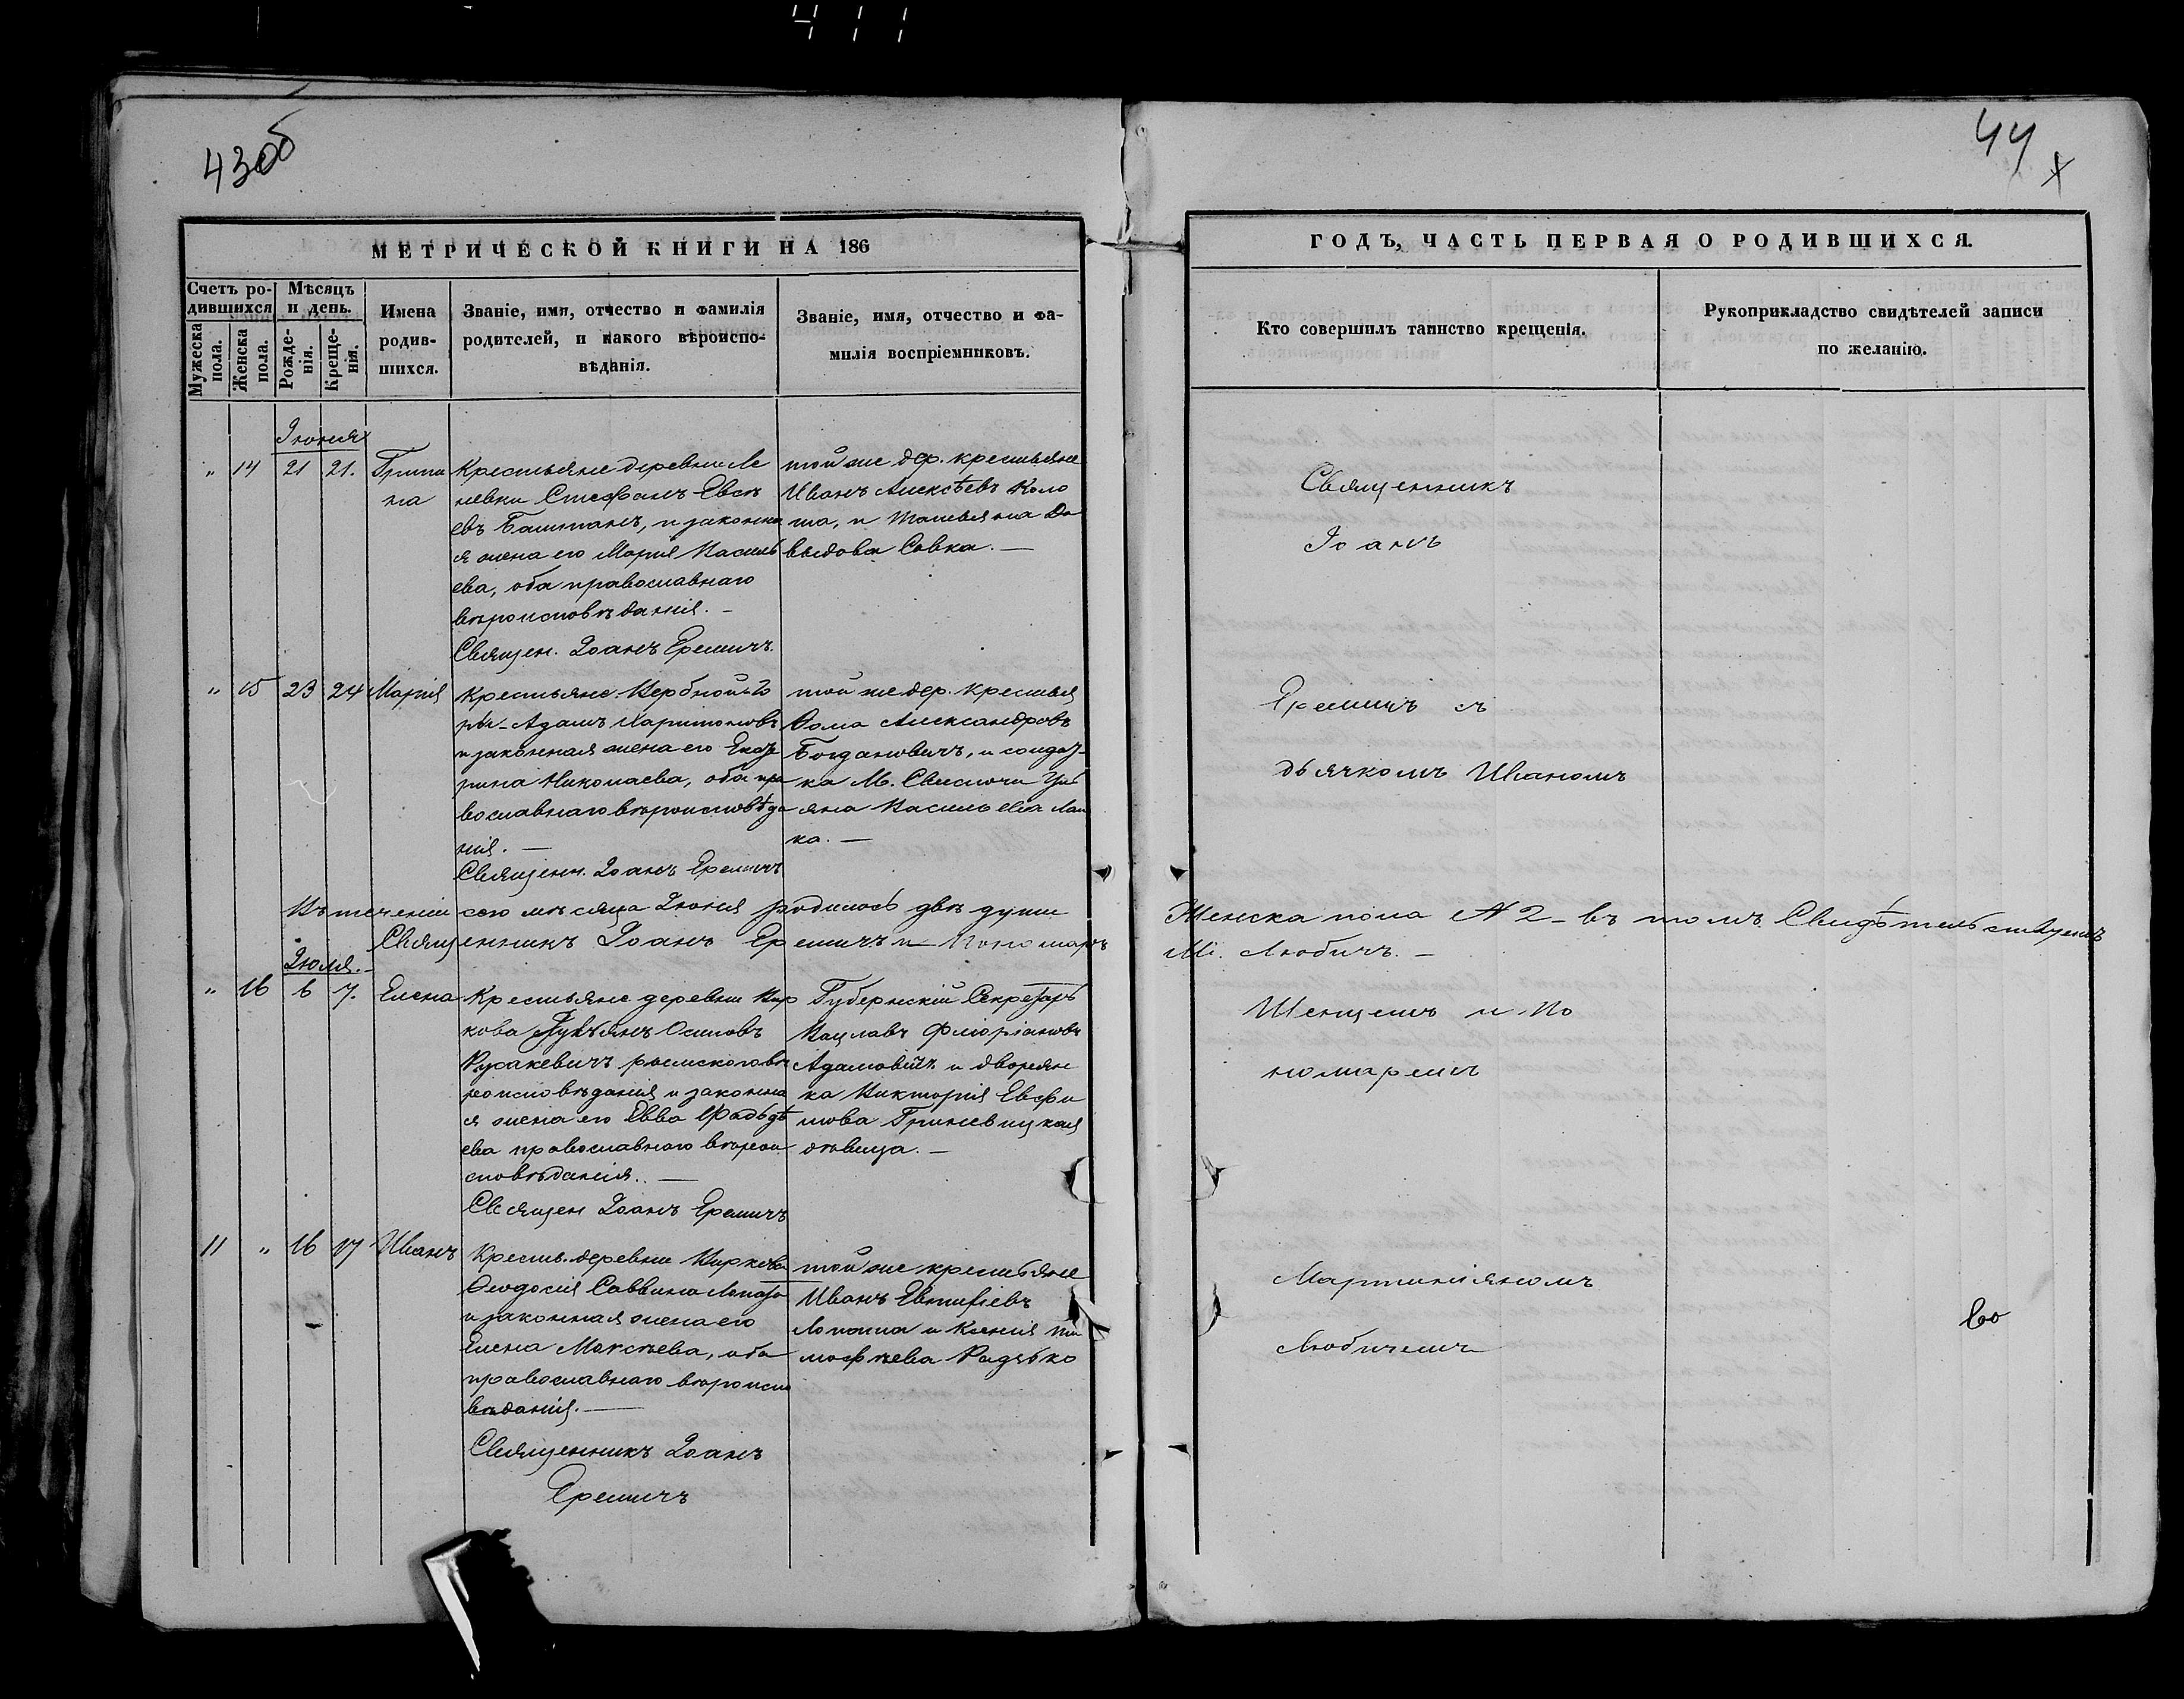 411
43об
44
х
МЕТРИЧЕСКОЙ КНИГИ НА 186
ГОДЪ, ЧАСТЬ ПЕРВАЯ О РОДИВШИХСЯ.
Счетъ ро-
дившихся
Мужеска
пола.
Женска
пола.
Мѣсяцъ
и день.
Рожде-
нія.
Креще-
нія.
Имена
родив-
шихся.
Званіе, имя, отчество и фамилія
родителей, и какого вѣроиспо-
вѣданія.
Званіе, имя, отчество и фа-
милія воспріемниковъ.
Кто совершилъ таинство крещенія.
Рукоприкладство свидѣтелей записи
по желанію.
Іюня
" 14 21 21.
на
Крестьяне деревни Ле
невки Стефанъ Евсѣ
евъ Баштанъ, и законна
я жена его Марія Василь
ева, оба православнаго
вѣроисповѣданія. -
Священ. Іоанъ Еремичъ.
той же дер. крестьяне
Иванъ Алексѣевъ Коло
та, и Татьяна Да
выдова Савка. —
" 15 23 24 Марія
Крестьяне Вербной-Го
ры - Адамъ Харитоновъ
и законная жена его Екате
рина Николаева, оба пра
вославнаго вѣроисповѣда
нія. —
Священн. Іоанъ Еремичъ
той же дер. крестья
Ѳома Александровъ
Богдановичъ, и солдат-
ка М. Свислочи Уль
яна Васильева
ка. —
Священникъ
Іоанъ
Еремичъ съ
дьячкомъ Иваномъ
Въ теченіи сего мѣсяца Іюня родилось двѣ души Женска пола № 2 - въ томъ Свидѣтельствуемъ
Священникъ Іоанъ Еремичъ и Пономарь М. Любичъ. —
Іюля. -
" 16 6 7. Елена
Крестьяне деревни Вир
кова Лукьянъ Осиповъ
Русакевичъ римскаго вѣ
роисповѣданія и законна
я жена его Евва Ѳадьдѣ
ева православнаго вѣрои
сповѣданія. —
Священ Іоанъ Еремичъ
Губернскій Секретарь
Вацлавъ Флоріановъ
Адамовичъ и дворян
ка Викторія Евфи
мова Гриневицкая
дѣвица. —
11 " 16 17 Иванъ
Крестья. деревни Виркова
Ѳеодосій Саввинъ Лопата
и законная жена его
Елена Моксѣева, оба
православнаго вѣроиспо
вѣданія. —
Священникъ Іоанъ
Еремичъ
той же крестьяне
Иванъ Евтифіевъ
Лопата и Ксенія Ти
мофѣева Радзько
и По
номаремъ
Мартиніяномъ
Любичемъ